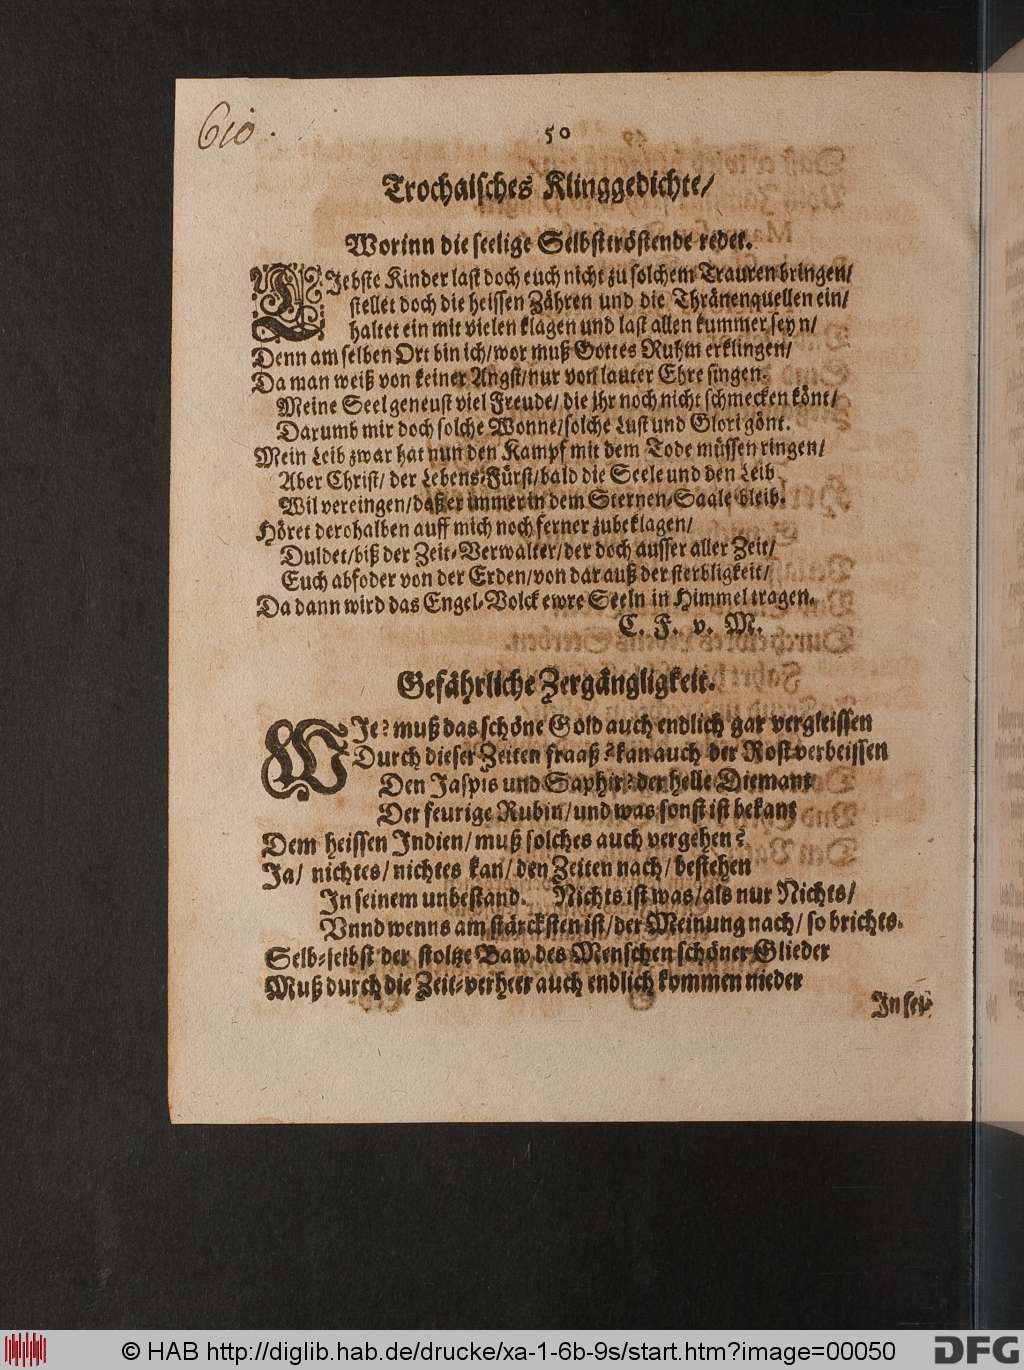 610.
50
Trochaisches Klinggedichte/
Worinn die seelige Selbsttröstende redet.
LJebste Kinder last doch euch nicht zu solchem Trauren bringen/
stellet doch die heissen Zähren und die Thränenquellen ein/
haltet ein mit vielen klagen und last allen kummer seyn/
Denn am selben Ort bin ich/wor muß Gottes Ruhm erklingen/
Da man weiß von keiner Angst/nur von lauter Ehre singen.
Meine Seel geneust viel Freude/ die jhr noch nicht schmecken könt/
Darumb mir doch solche Wonne/solche Lust und Glori gönt.
Mein Leib zwar hat nun den Kampf mit dem Tode müssen ringen/
Aber Christ/ der Lebens-Fürst/bald die Seele und den Leib
Wil vereingen/daß er immer in dem Sternen-Saale bleib.
Höret derohalben auff mich noch ferner zubeklagen/
Duldet/biß der Zeit-Verwalter/der doch ausser aller Zeit/
Euch abfoder von der Erden/von dar auß der sterbligkeit/
Da dann wird das Engel-Volck ewre Seeln in Himmel tragen.
C. F. v. M.
Gefährliche Zergängligkeit.
WJe? muß das schöne Gold auch endlich gar vergleissen
Durch dieser Zeiten fraaß? kan auch der Rost verbeissen
Den Jaspis und Saphir? der helle Diemant
Der feurige Rubin/und was sonst ist bekant
Dem heissen Indien/ muß solches auch vergehen?
Ja/ nichtes/ nichtes kan/ den Zeiten nach/ bestehen
In seinem unbestand. Nichts ist was/als nur Nichts/
Vnnd wenns am stärcksten ist/der Meinung nach/ so brichts.
Selb-selbst der stoltze Baw des Menschen schöner Glieder
Muß durch die Zeit-verheer auch endlich kommen nieder
In sei-
© HAB http://diglib.hab.de/drucke/xa-1-6b-9s/start.htm?image=00050
DFG